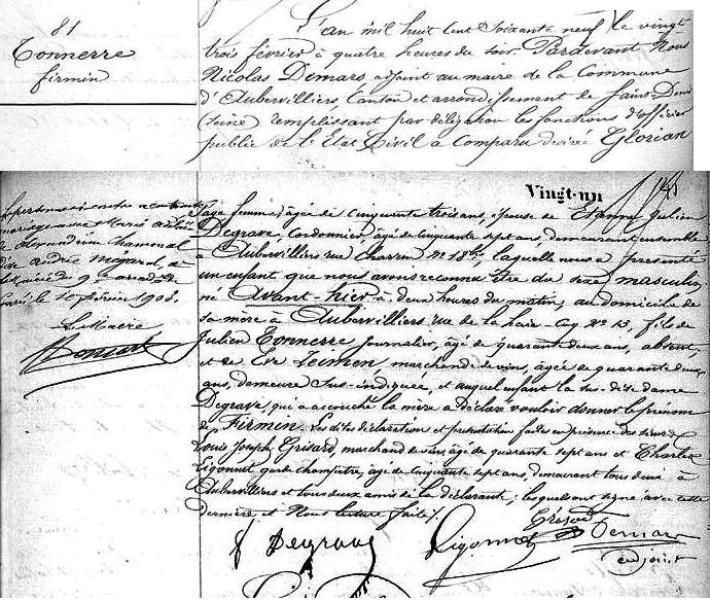 81
Tonnerre
firmin
L'an mil huit cent soixante neuf le vingt
trois février à quatre heures du soir. Pardevant Nous
Nicolas Demars adjoint au maire de la Commune
d'Aubervilliers, Canton et arrondissement de Saint-Denis
(Seine) remplissant par délégation les fonctions d'officier
public de l'Etat Civil a Comparu désirée Glorian
Vingt-un
Sage femme, âgée de Cinquante trois ans, épouse de Etienne Julien
Degrave, Cordonnier, âgé de Cinquante sept ans, demeurant ensemble
à Aubervilliers rue Charron nº 18 bis, laquelle nous a présenté
un enfant que nous avons reconnu être du sexe masculin
né Avant-hier à deux heures du matin, au domicile de
sa mère à Aubervilliers rue de la haie Coq Nº 13, fils de
Julien Tonnerre journalier, âgé de quarante deux ans, absent,
et de Eve Leimen, marchande de vins, âgée de quarante deux
ans, demeure sus-indiquée, et auquel enfant la sus-dite dame
Degrave, qui a accouché la mère a déclaré vouloir donner le prénom
de Firmin. Les dites déclaration et présentation faites en présence des sieurs
Louis Joseph Grisard, marchand de vins, âgé de quarante sept ans et Charles
Ligonnet, garde champêtre, âgé de Cinquante sept ans, demeurant tous deux à
Aubervilliers et tous deux amis de la déclarante; lesquels ont signé avec cette
dernière et Nous lecture faite /.
mariage avec
Alexandrine
André
Paris le 10 février 1908.
Le Maire
Degrave Ligonnet Grisard Demars
adjoint